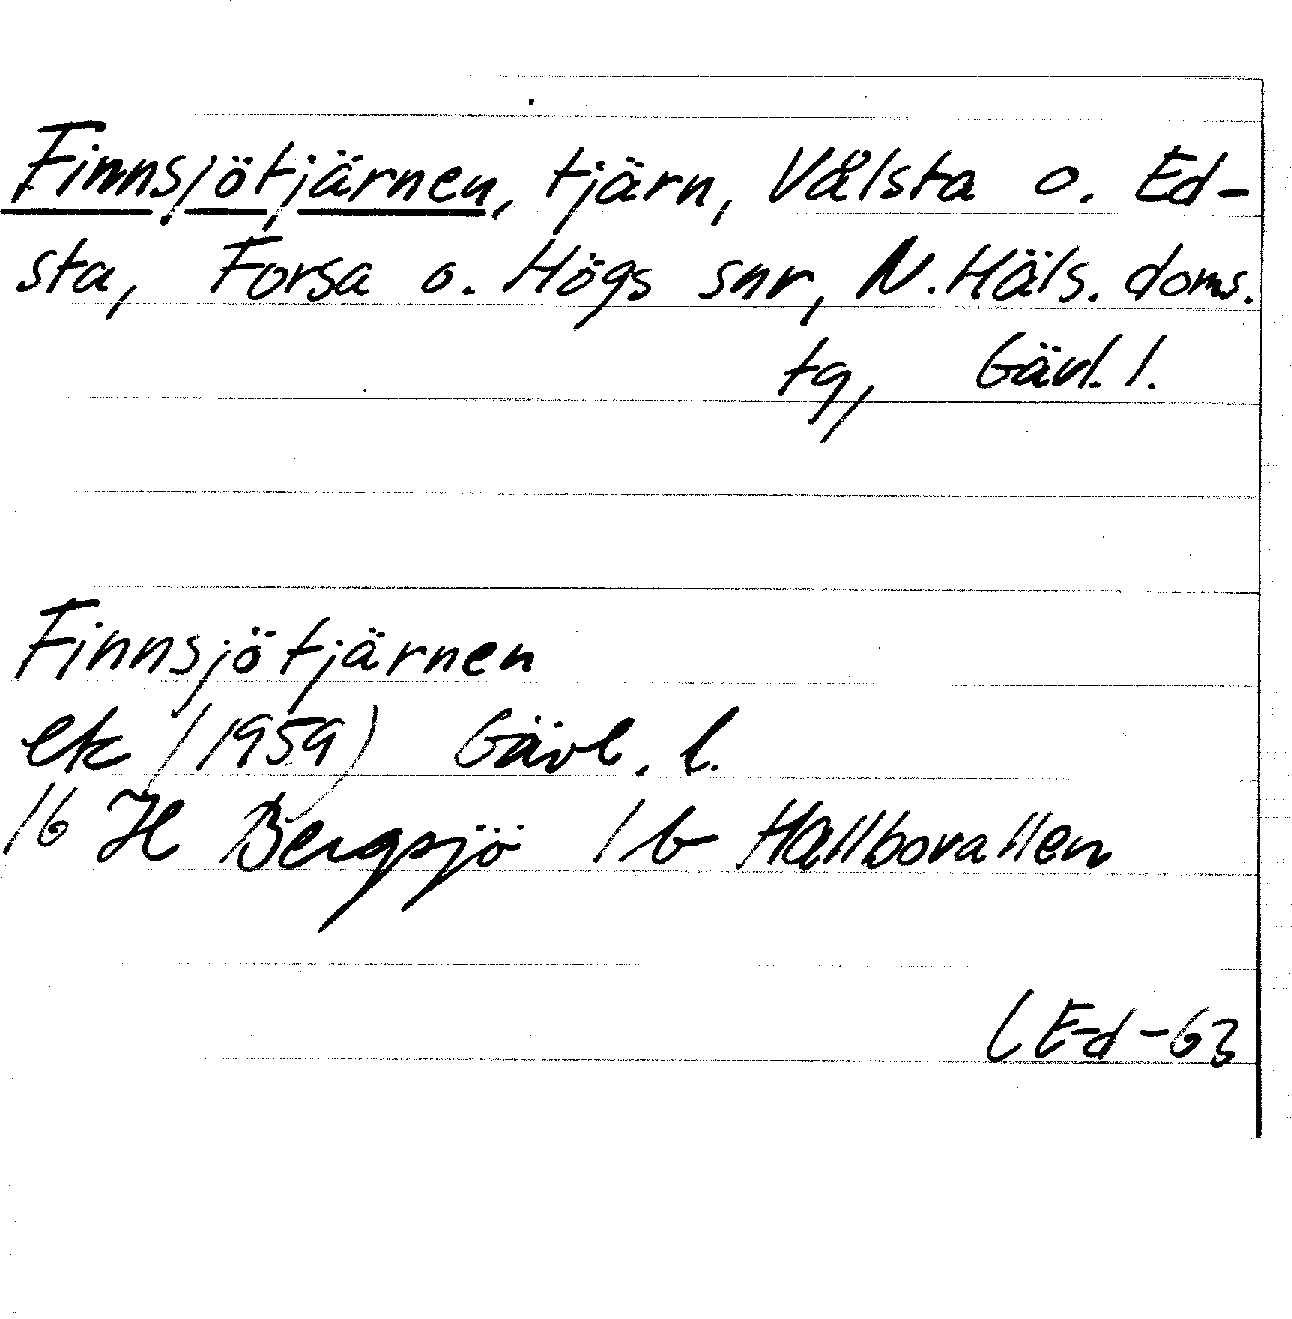 Finnsjötjärnen, tjärn, Vålsta o. Ed-
sta, Forsa o. Högs snr, N. Häls. doms.
tg, Gävl. l.
Finnsjötjärnen
ek (1959) Gävl. l.
16 H Bergsjö 1 b Hallbovallen
LEd-63